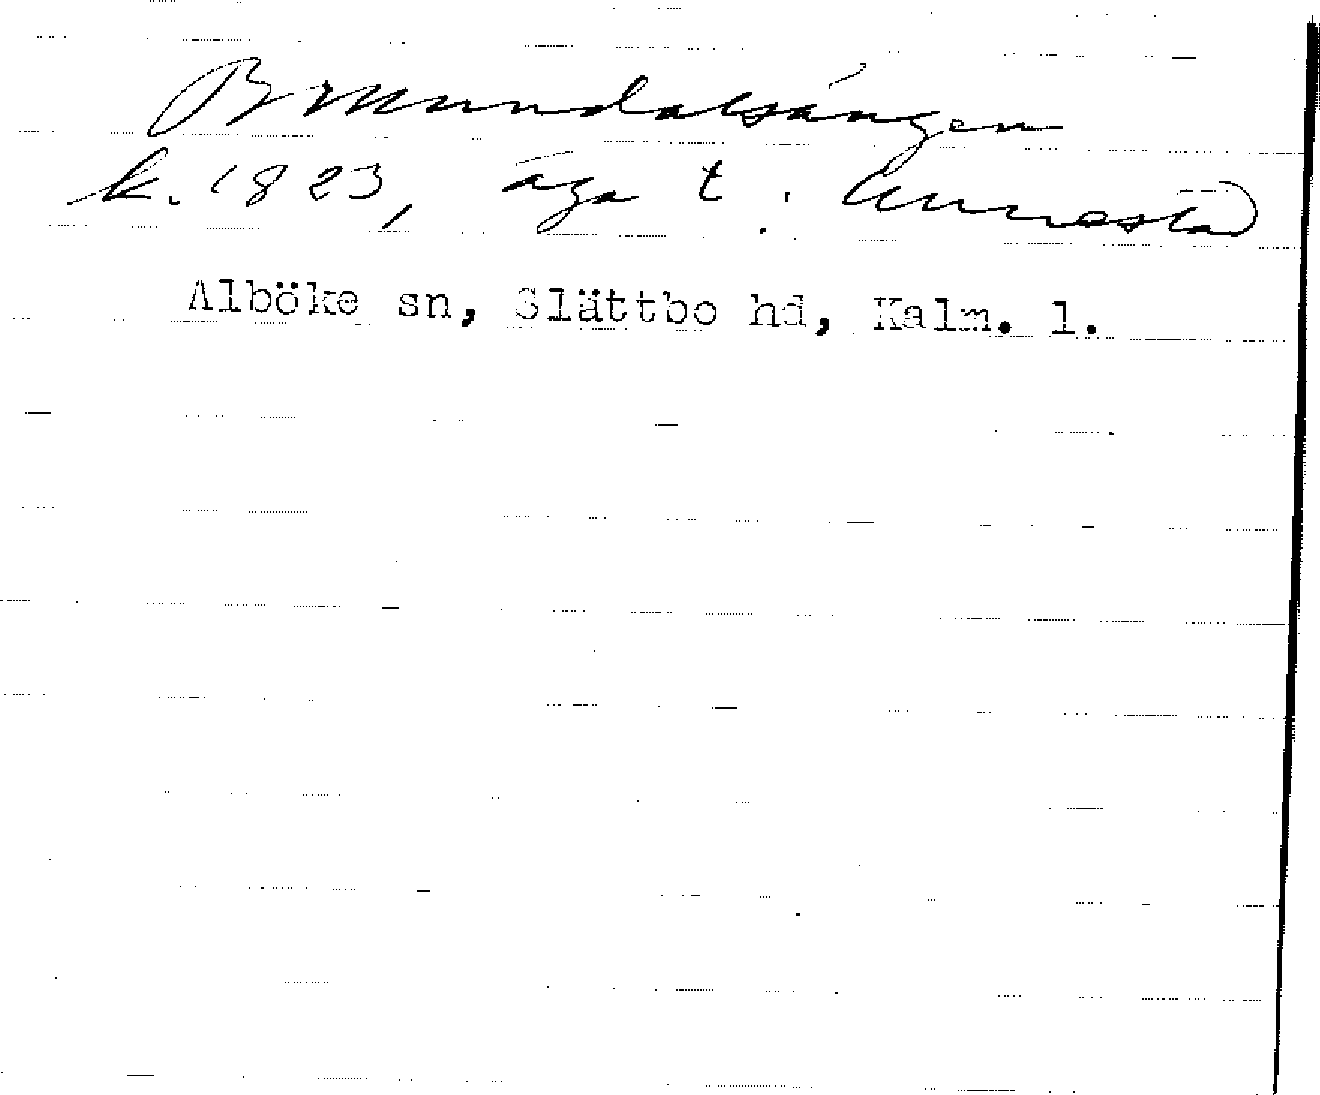 Brmundalsängen
k. 1823, äga t. Annestad
Alböke sn, Slättbo hd, Kalm. l.